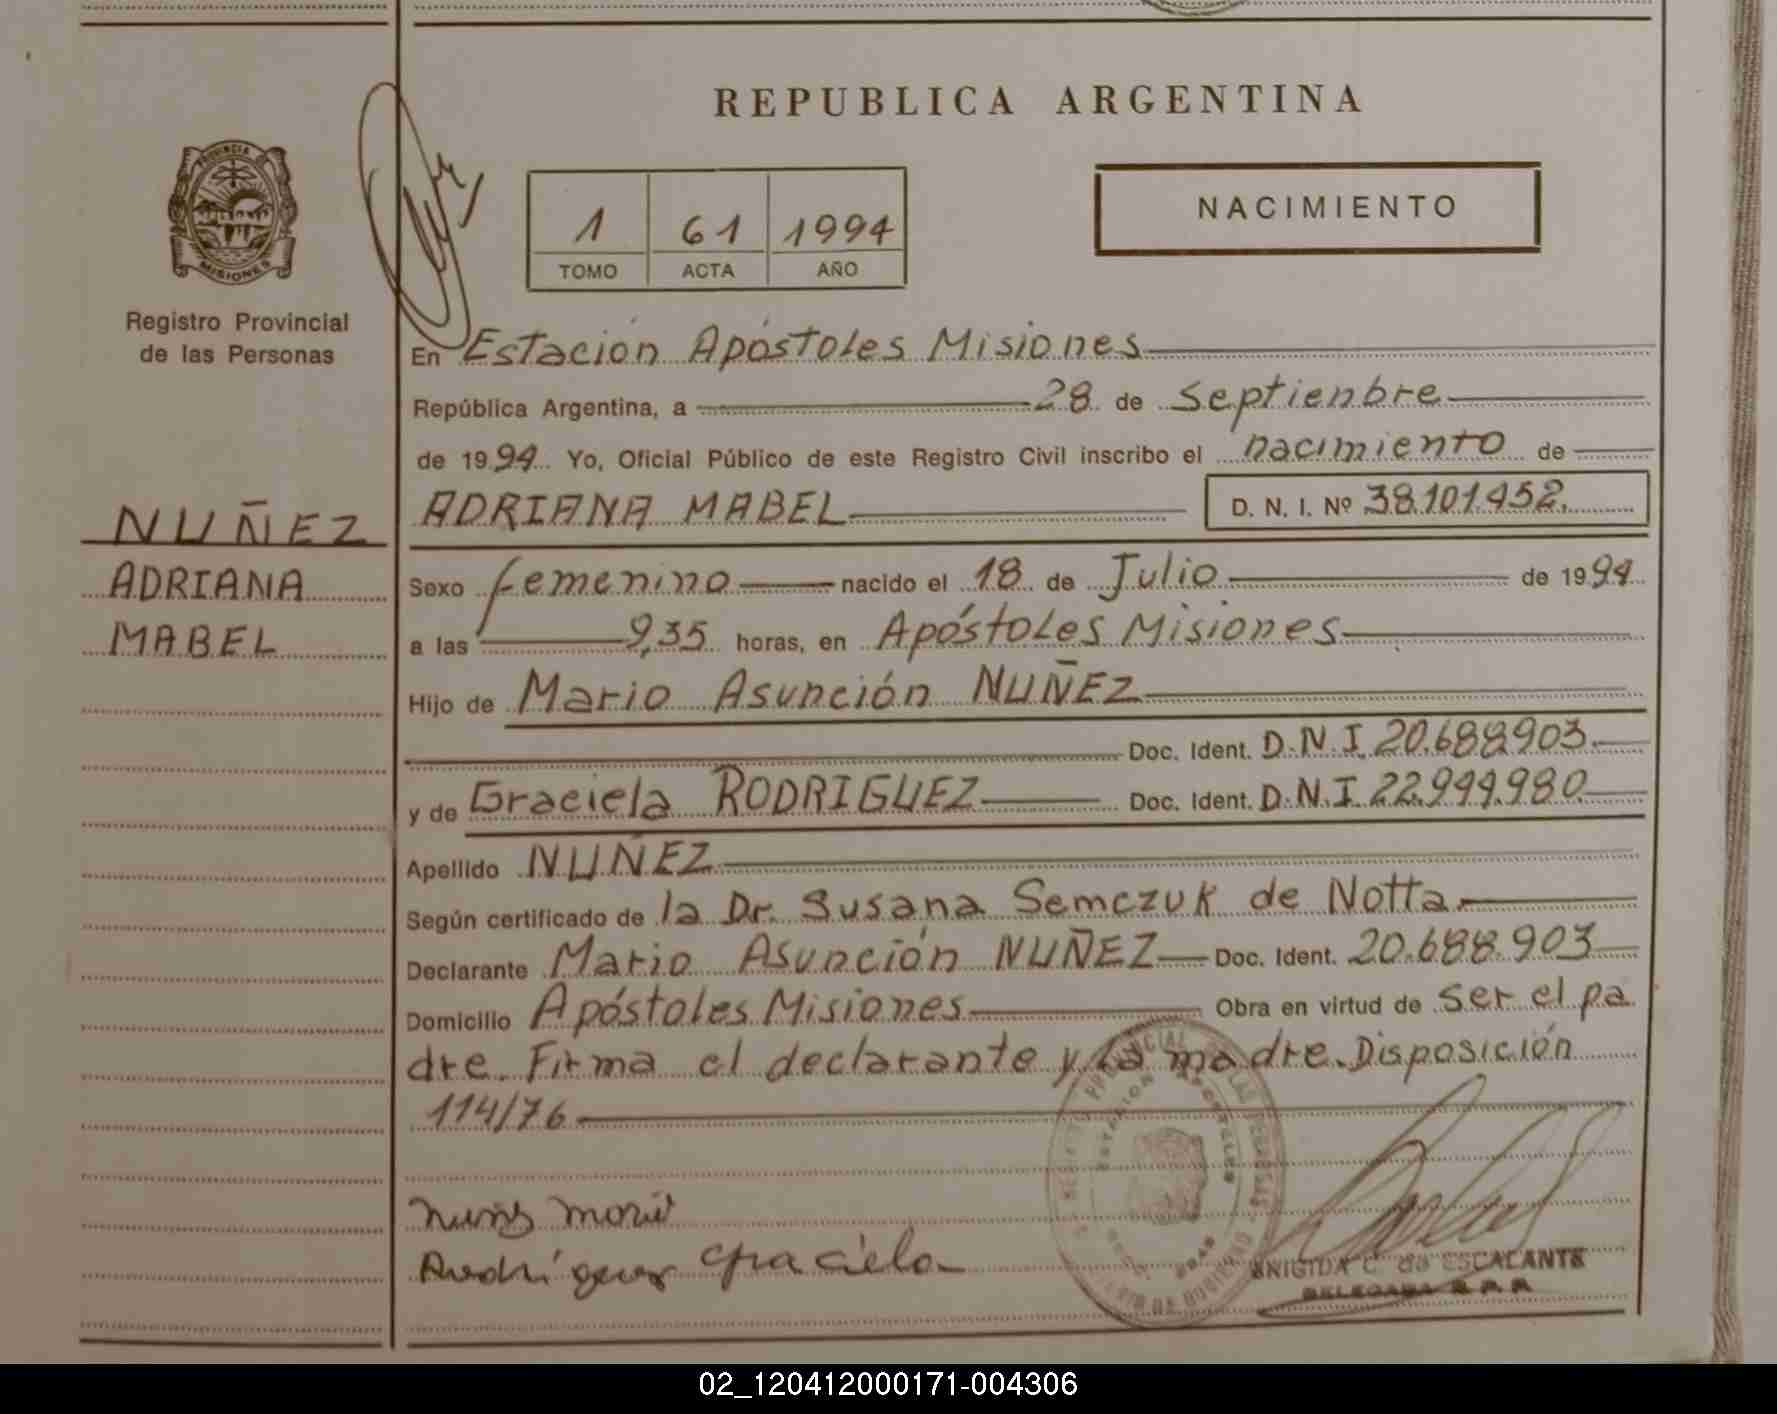 REPUBLICA ARGENTINA
PROVINCIA DE
MISIONES
Registro Provincial
de las Personas
1 61 1994
TOMO ACTA AÑO
NACIMIENTO
En Estación Apóstoles Misiones
República Argentina, a 28 de septienbre
de 1994 Yo, Oficial Público de este Registro Civil inscribo el nacimiento de
ADRIANA MABEL D. N. I. Nº 38.101.452.
NUÑEZ
ADRIANA
MABEL
Sexo femenino nacido el 18 de Julio de 1994
a las 9,35 horas, en Apóstoles Misiones
Hijo de Mario Asunción NUÑEZ
Doc. Ident. D.N.I. 20.688.903
y de Graciela RODRIGUEZ Doc. Ident. D.N.I. 22.949.980
Apellido NUÑEZ
Según certificado de la Dr. Susana Semczuk de Notta
Declarante Mario Asunción NUÑEZ Doc. Ident. 20.688.903
Domicilio Apóstoles Misiones Obra en virtud de ser el pa
dre. Firma el declarante y la madre. Disposición
114/76
Rodríguez Graciela
BRIGIDA C. de ESCALANTE
DELEGADA R.P.P.
02_120412000171-004306